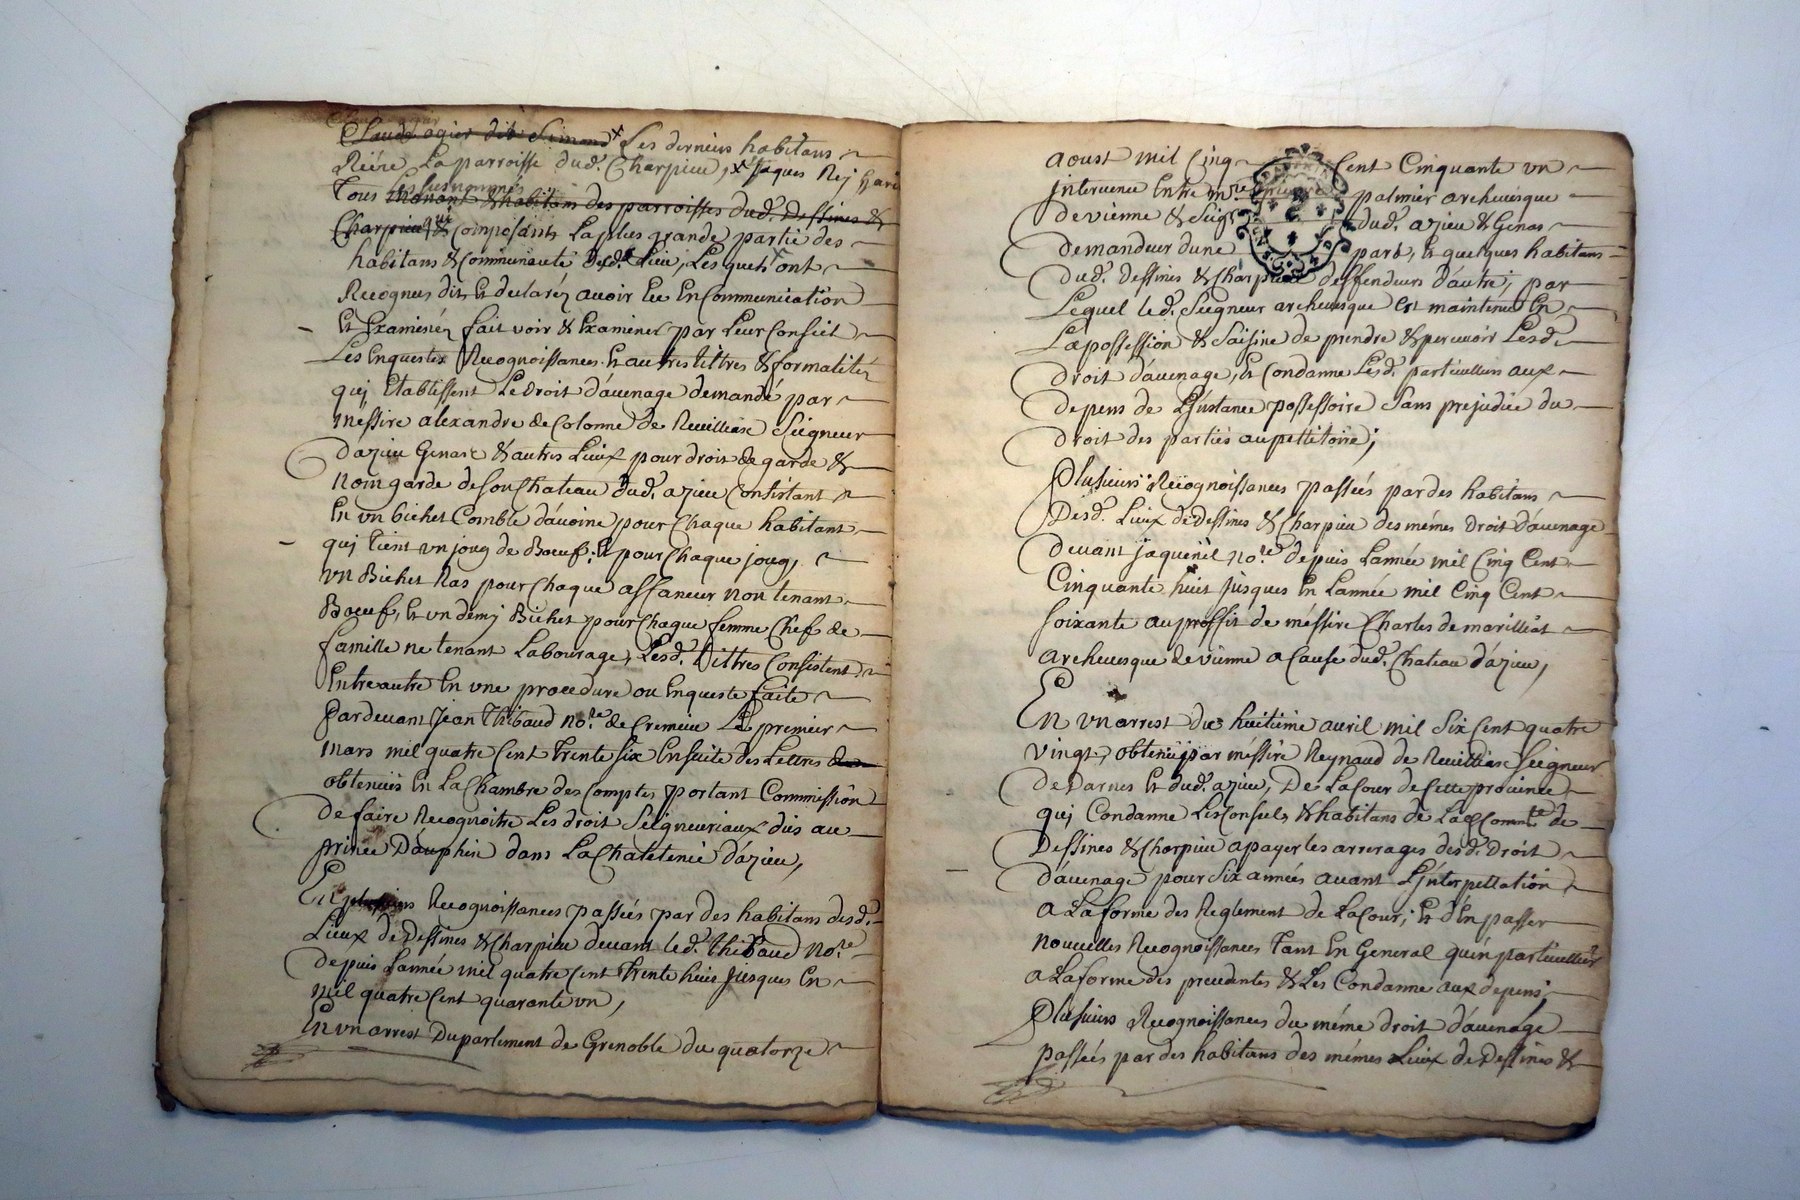 Claude ogier dit Simond x Les derniers habitans
Rière La parroisse dud. Charpieu, x Jaques Rej
Les susnommés
Tous manant & habitans des parroisses dud. Dessines &
Charpieu, qui & Composants La plus grande partie des
habitans & Communauté desd. Lieu, Lesquels ont
Recognus dit, Et declaréz avoir Eu En Communication
Et Examinéz fait voir & Examiner par Leur Conseil
Les Enquestes Recognoissances Et autres tiltres & formalitéz
quj Etablissent Le droit d'avenage demandé par
messire alexandre de Colonne de Revilliasc Seigneur
d'azieu Genas & autres Lieux pour droit de garde &
noingarde de Son Chateau dud. azieu Consistant
En vn bichet Comble d'avoine pour Chaque habitant
quj tient vn joug de Boeuf, Et pour Chaque joug,
vn Bichet Ras pour Chaque affaneur non tenant
Boeuf, Et vn demj Bichet pour Chaque femme Chef de
famille ne tenant Labourage, Lesd. Tiltres Consistent
Entre autre En vne procedure ou Enqueste faite
Pardevant Jean Thibaud no.re de Cremieu Le premier
mars mil quatre Cent Trente Six Ensuite des Lettres
obtenuës En La Chambre des Comptes portant Commission
de faire Recognoitre Les droit Seigneuriaux dus au
prince Dauphin dans La Chatelenie d'azieu,
Recognoissances passées par des habitans desd.
Lieux de Dessines & Charpieu devant led. Thibaud no.re
depuis Lannée mil quatre Cent Trente huit Jusques En
mil quatre Cent quarante vn,
En vn arrest Du parlement de Grenoble du quatorze
aoust mil Cinq Cent Cinquante vn
Intervenu Entre m.re palmier archevesque
de vienne & Seig.r dud. azieu & Genas
demandeur dune part, Et quelques habitans
dud. Dessines & Charpieu deffendeurs d'autre, par
Lequel led. Seigneur archevesque Est maintenu En
La possession & Saisine de prendre & percevoir Lesd.
Droit d'avenage, Et Condanne Lesd. particulliers aux
depens de L'Instance possessoire Sans prejudice du
droit des parties au petitoire;
Plusieurs Recognoissances passées par des habitans
Desd. Lieux de Dessines & Charpieu des mémes Droit d'avenage
devant jaquenil no.re depuis Lannée mil Cinq Cent
Cinquante huit Jusques En Lannée mil Cinq Cent
soixante au proffit de méssire Charles de marilliat
archevesque de vienne a Cause dud. Chateau d'azieu,
En vn arrest du huitieme avril mil Six Cent quatre
vingt, obtenu par méssire Reynaud de Revilliasc Seigneur
de Darnes Et dud. azieu, De La Cour de Cette province
quj Condanne Les Consuls & habitans de La Comm.té de
Dessines & Charpieu a payer les arrerages desd. Droit
d'avenage pour Six années avant L'Interpellation
a La forme des Reglement de La Cour, Et d'En passer
nouvelles Recognoissances Tant En General qu'én particullier
a La forme des precedentes & Les Condanne aux depens,
Plusieurs Recognoissances du méme droit d'avenage
passées par des habitans des mémes Lieux de Dessines &